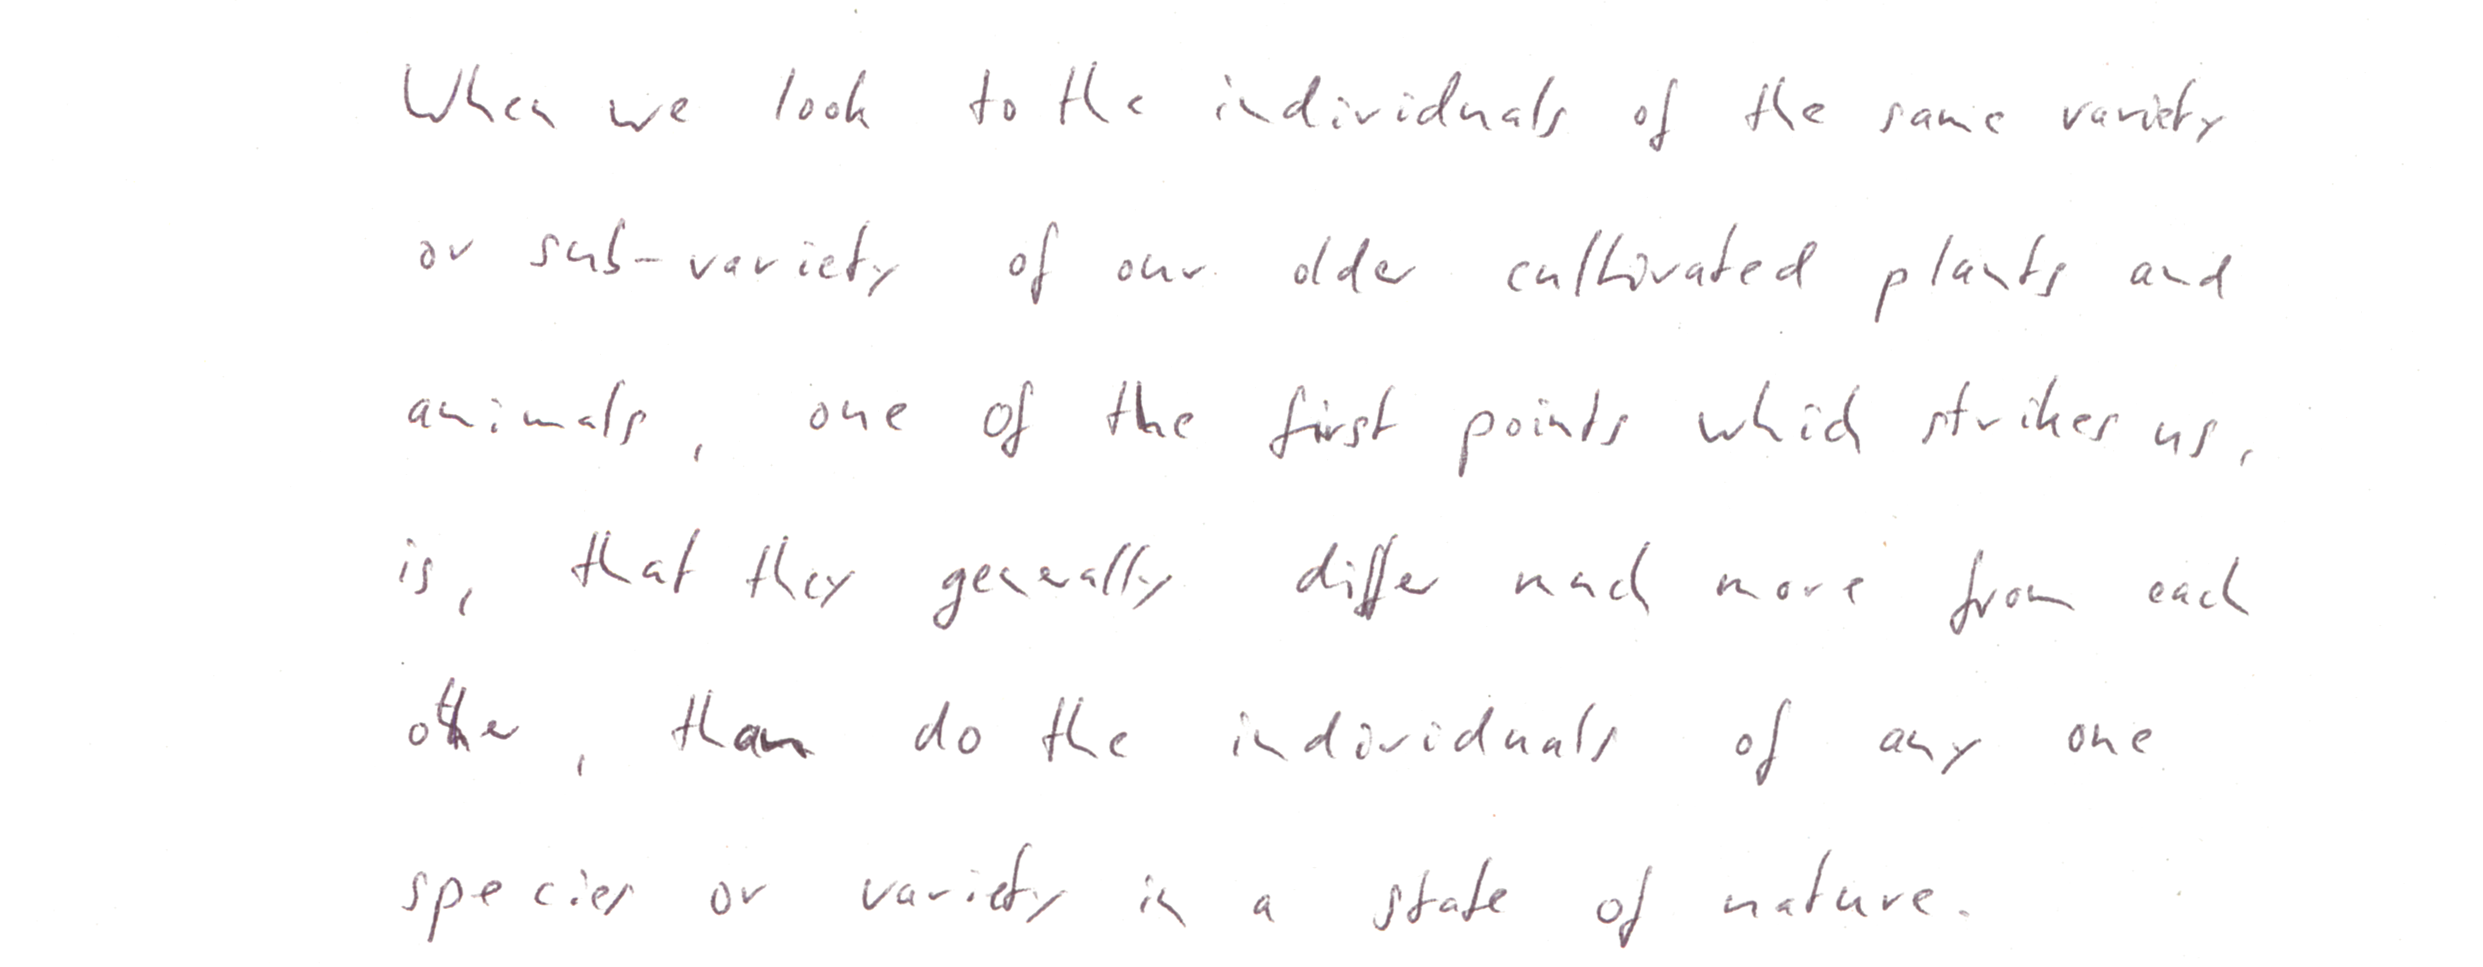 When we look to the individuals of the same variety
or sub-variety of our older cultivated plants and
animals, one of the first points which strikes us,
is, that they generally differ much more from each
other, than do the individuals of any one
species or variety in a state of nature.